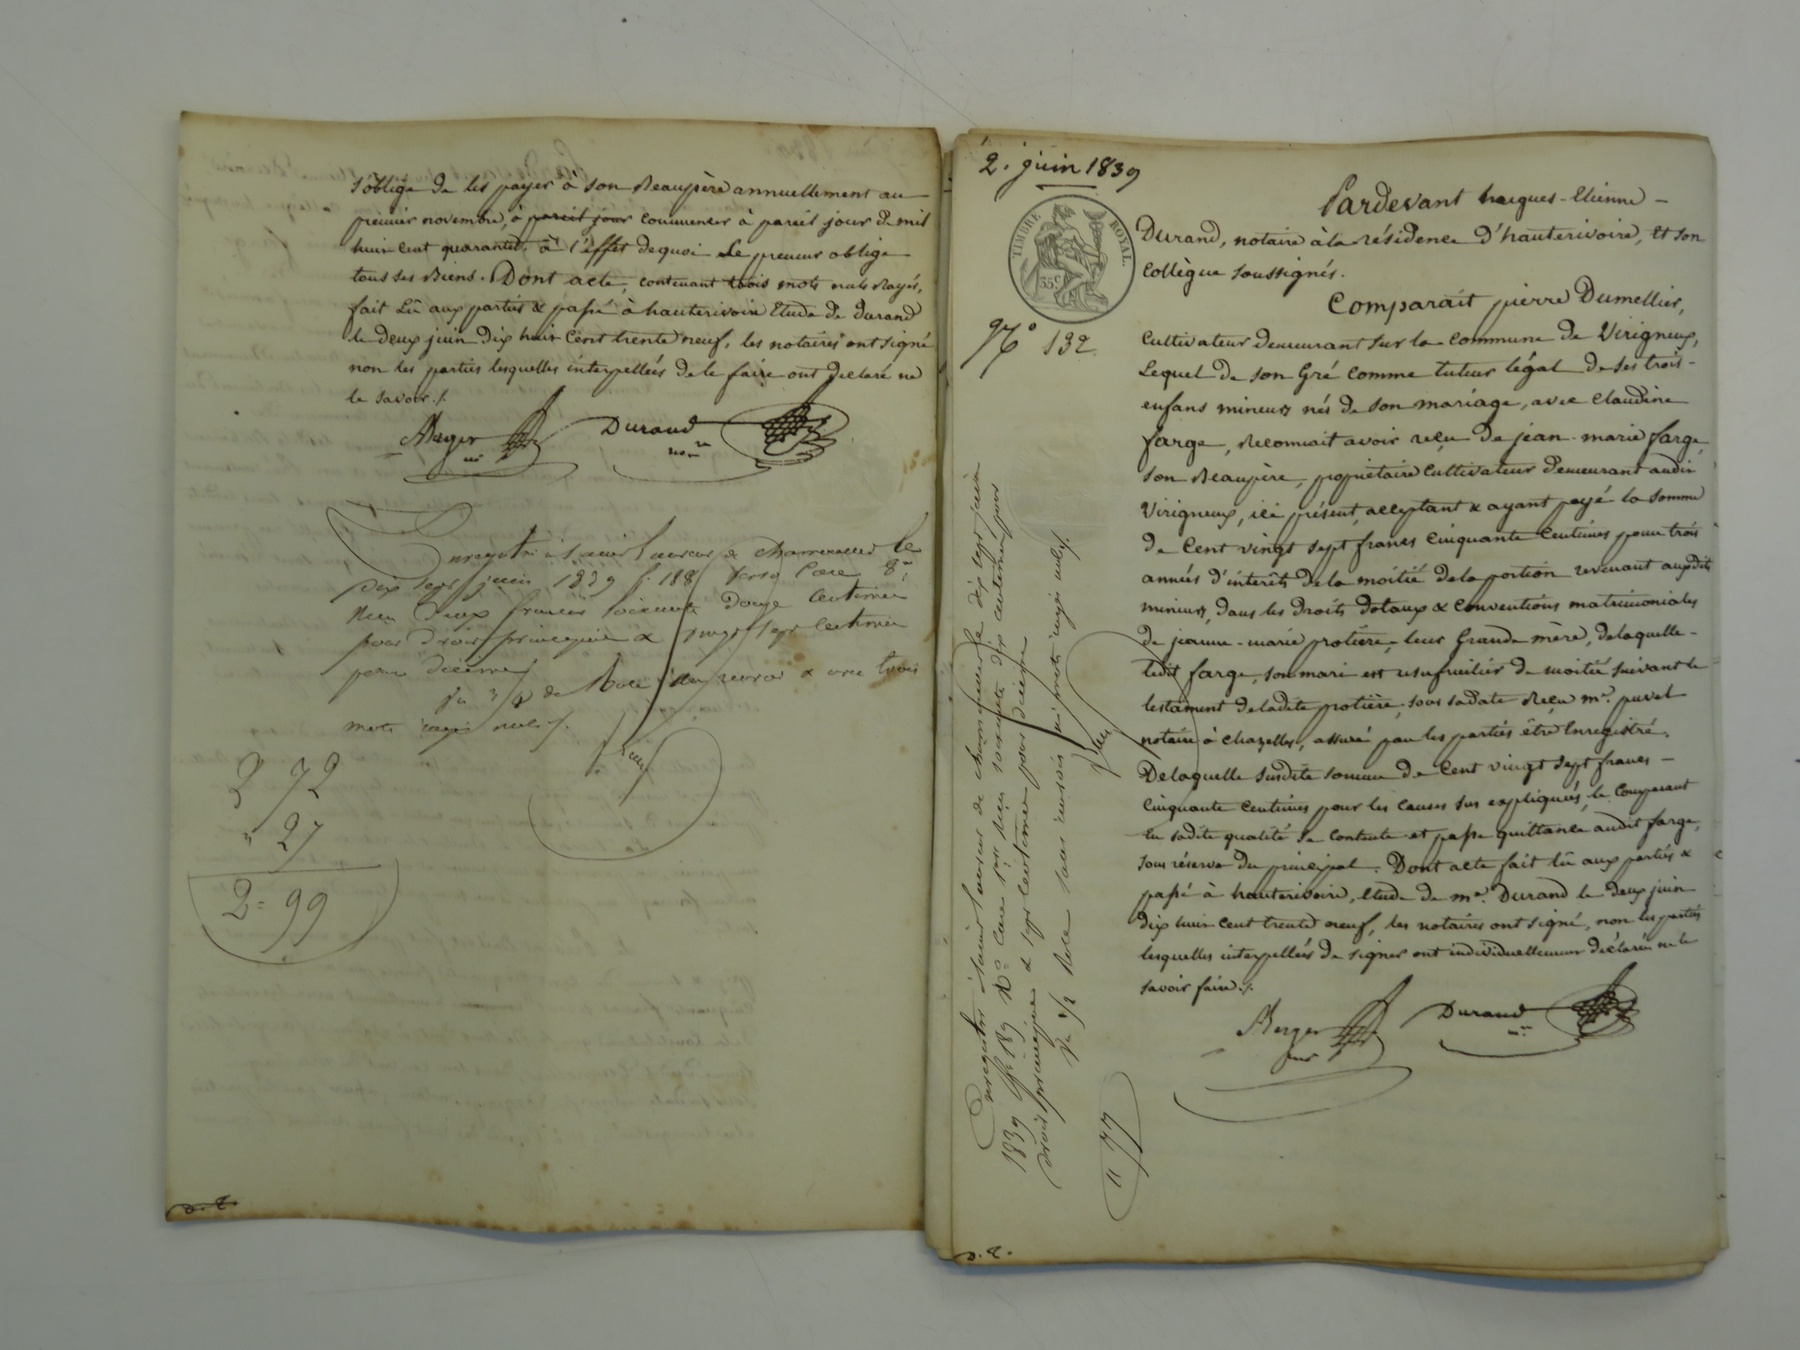 s'oblige de les payer à son Beaupère annuellement au
premier novembre, à pareil jour commencer à pareil jour de mil
huit cent quarante. à l'effet dequoi Le preneur oblige
tous ses Biens. Dont acte, contenant trois mots nuls Rayés,
fait Lû aux parties & passé à hauterivoire Etude de Durand
le deux juin dix huit Cent trente neuf, les notaires ont signé
non les parties lesquelles interpellées de le faire ont declaré ne
le savoir./.
Berger Durand
nre
Enregistré à Saint Laurent de Chamousset le
dix sept juin 1839 f. 188 verso Case 8
Reçu deux francs soixante douze centimes
pour droit principal & vingt sept centimes
pour décime
mots rayés nuls./.
2 72
" 27
2 = 99
D. E.
2. juin 1839
TIMBRE ROYAL.
35c
No 132
Pardevant Jacques-Etienne -
Durand, notaire à la résidence d'hauterivoire, et son
collègue soussignés.
Comparait pierre Dumellier,
Cultivateur demeurant sur la commune de Virigneux,
Lequel de son Gré comme tuteur légal de ses trois-
enfans mineurs nés de son mariage, avec claudine
farge, Reconnait avoir reçu de jean-marie farge,
son Beaupère, propriétaire cultivateur demeurant audit
Virigneux, ici présent, acceptant & ayant payé la somme
de Cent vingt sept francs Cinquante Centimes pour trois
années d'interêts de la moitié dela portion revenant auxdits
mineurs, dans les droits dotaux & Conventions matrimoniales
de jeanne-marie protière, leur Grande mère, delaquelle-
ledit farge, son mari est usufruitier de moitié suivant le
testament deladite protière, sous sadate Reçu me. puvel
notaire à chazelles, assuré par les parties être Enregistré.
Delaquelle susdite somme de Cent vingt sept francs -
Cinquante Centimes pour les causes sus expliquées, le Comparant
en sadite qualité se contente et passe quittance audit farge,
sous réserve du principal. Dont acte fait lû aux parties &
passé à hauterivoire, Etude de me. Durand le deux juin
dix huit cent trente neuf, les notaires ont signé, non les parties
lesquelles interpellées de signer ont individuellement déclaré ne le
savoir faire./.
Berger Durand
Enregistré à Saint Laurent de Chamousset le dix sept juin
1839 fo 189 Ro Case 1re Reçu soixante dix centimes pour
droit principal & sept centimes pour décime
" 77
D. E.